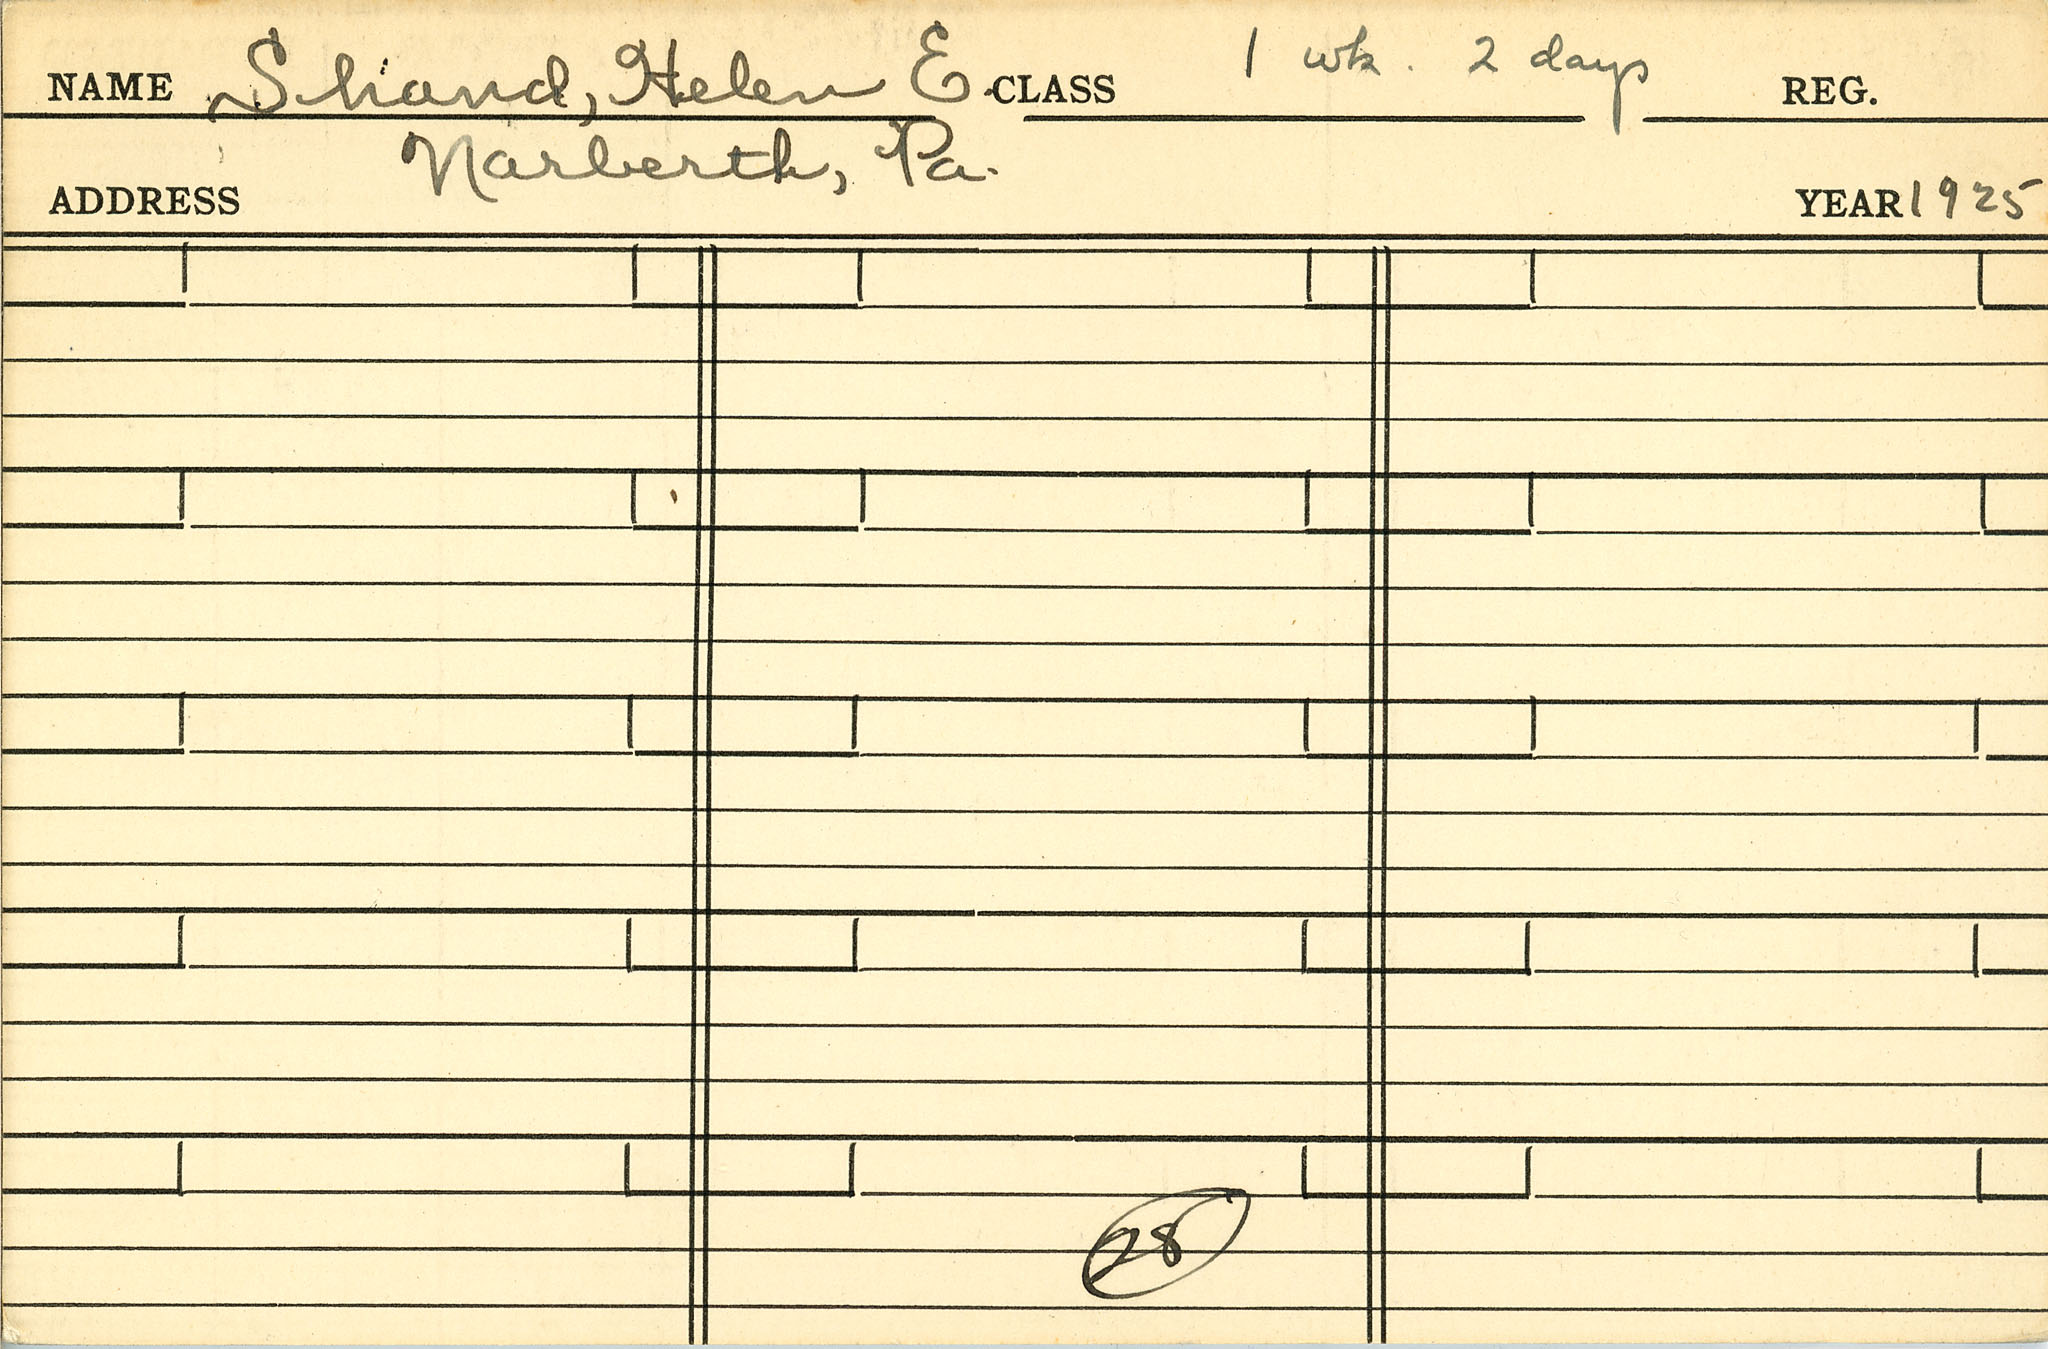 NAME Shand, Helen E. CLASS 1 wk. 2 days REG.
Narberth, Pa.
ADDRESS YEAR 1925
28